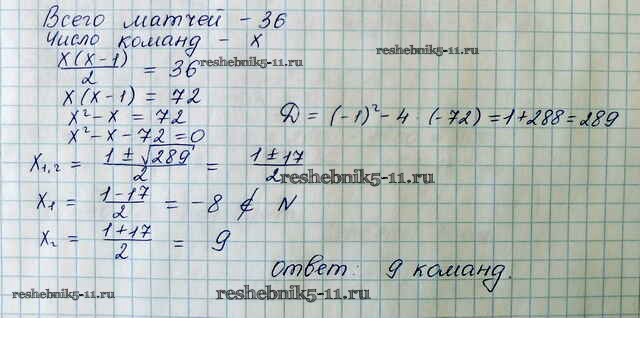 Всего матчей - 36
Число команд - x
x(x-1)/2 = 36
reshebnik5-11.ru
reshebnik5-11.ru
x(x-1) = 72
x² - x = 72
D = (-1)² - 4 · (-72) = 1 + 288 = 289
x² - x - 72 = 0
x₁,₂ = (1 ± √289)/2 = (1 ± 17)/2
reshebnik5-11.ru
x₁ = (1-17)/2 = -8 ∉ N
x₂ = (1+17)/2 = 9
Ответ: 9 команд.
reshebnik5-11.ru
reshebnik5-11.ru